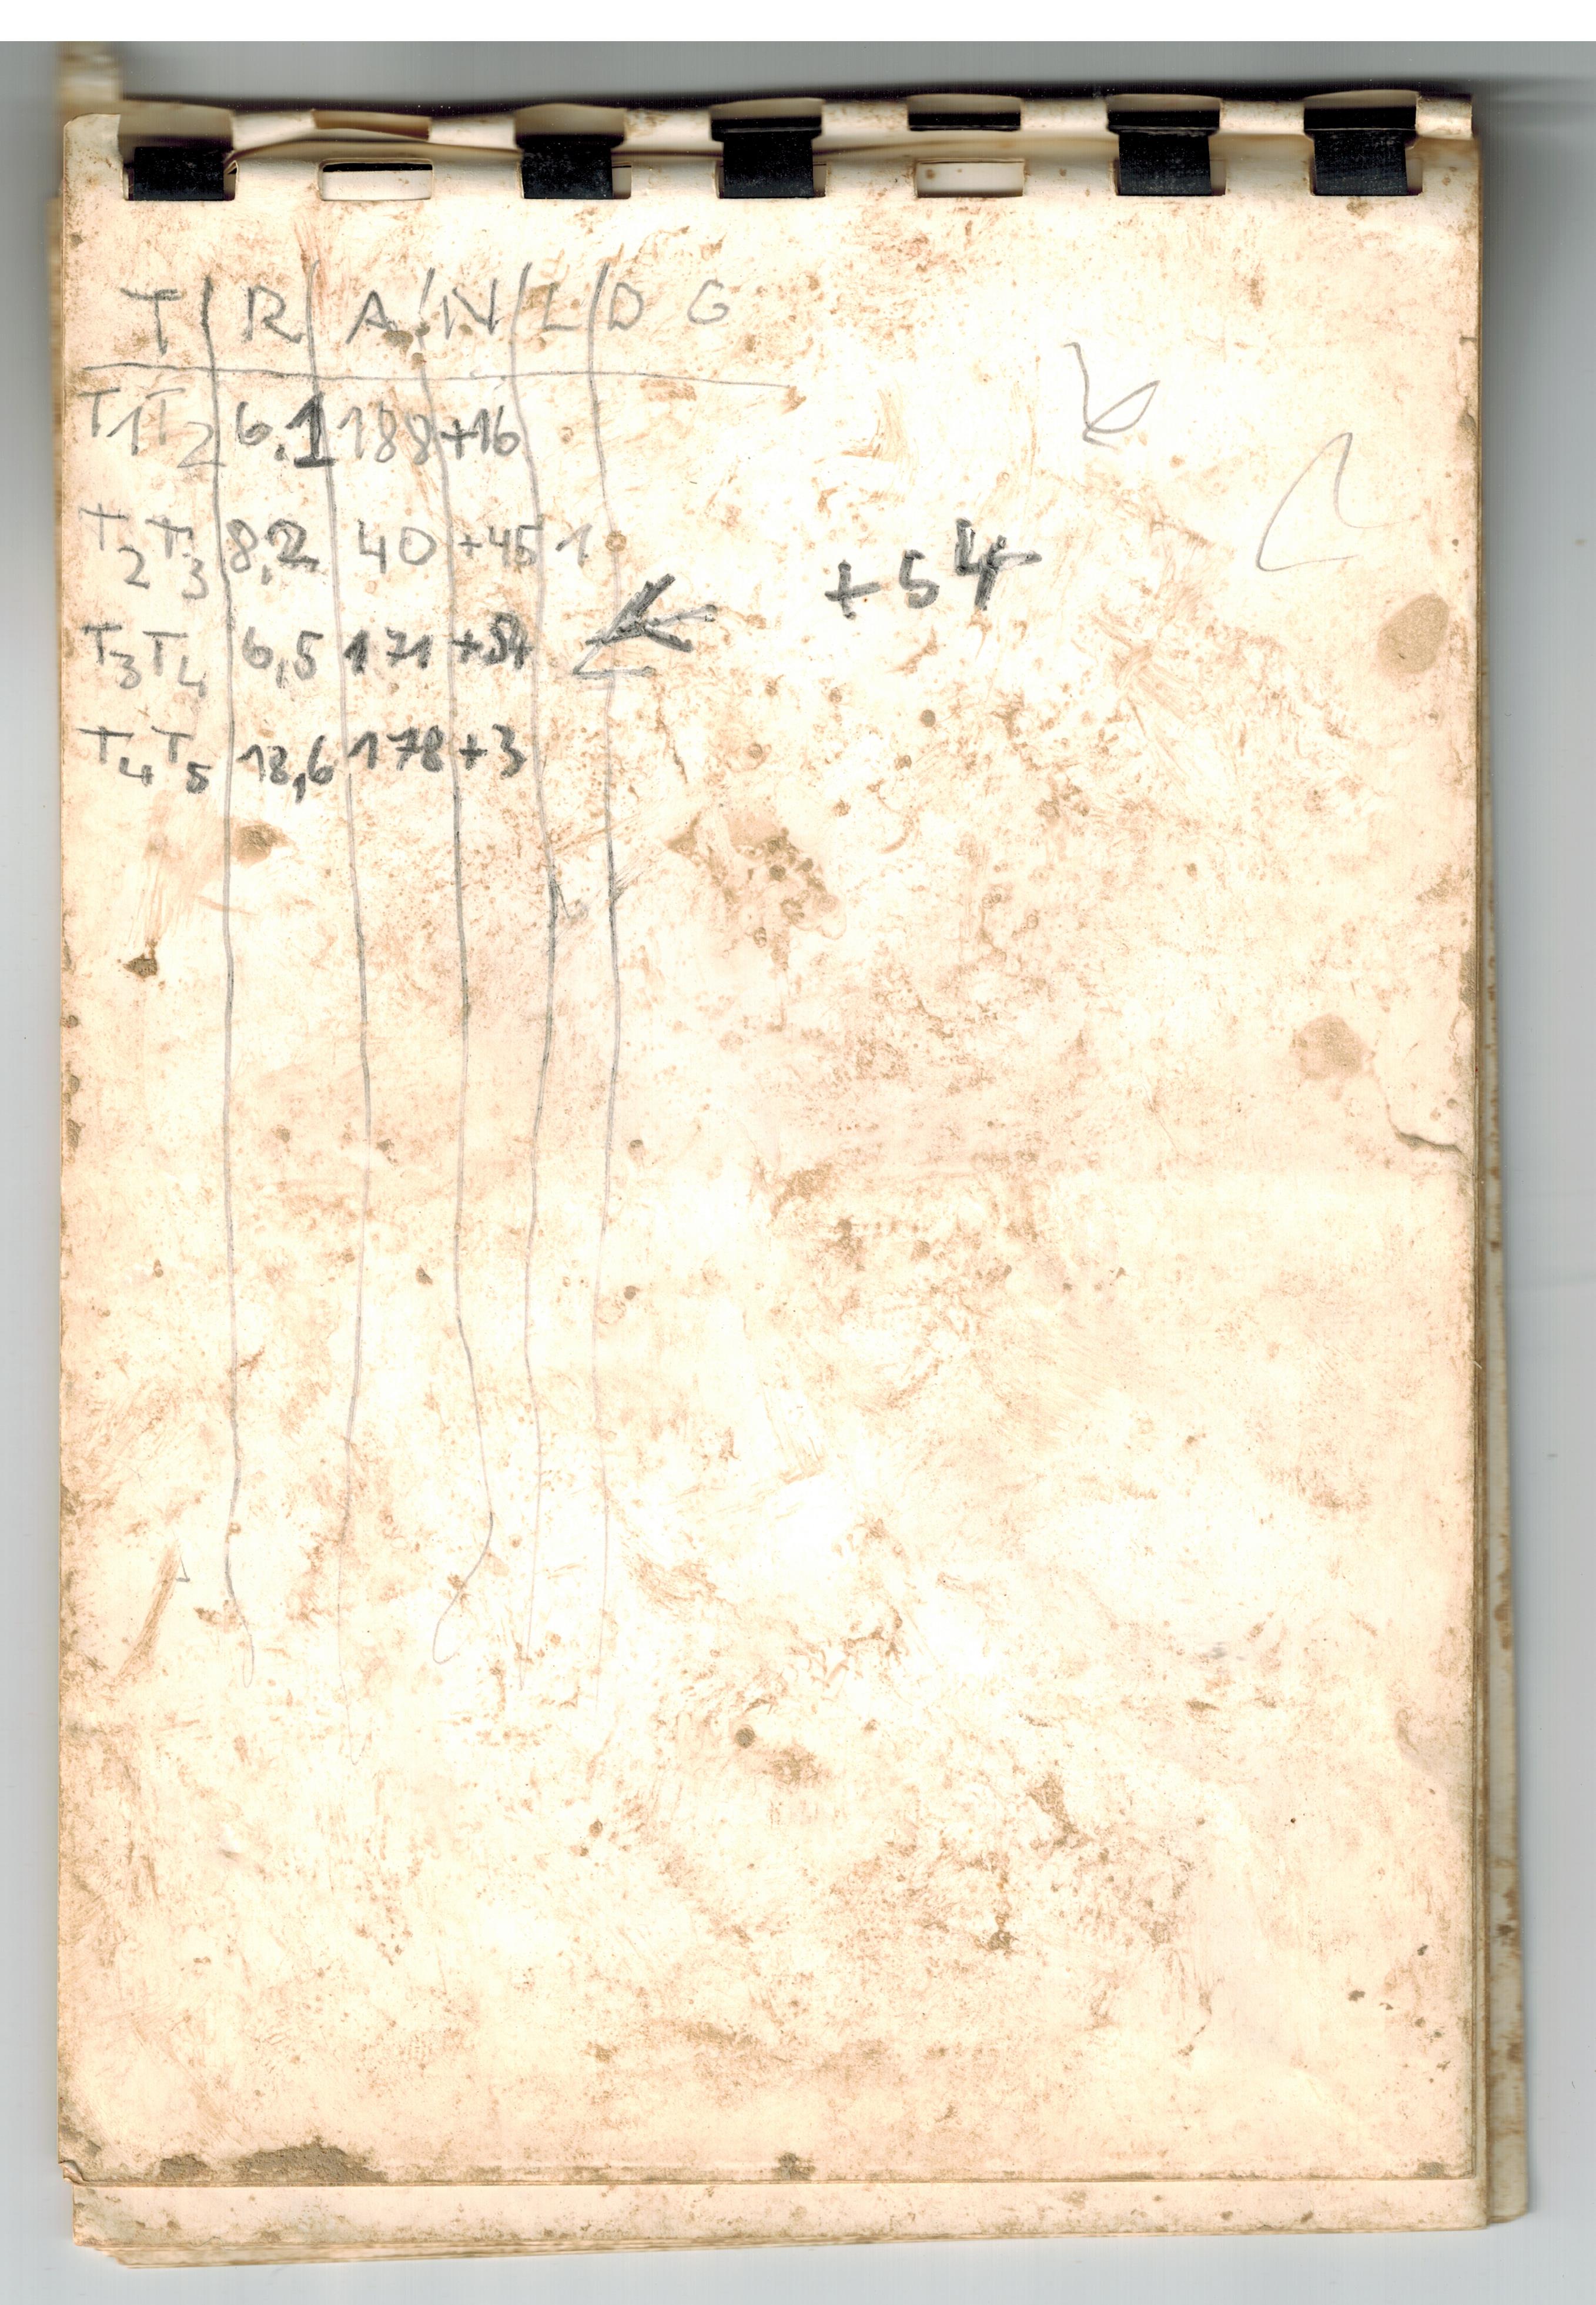 T R A N L D G
T1T2 6,1 188 +16
T2T3 8,2 40 +45 1
+54
T3T4 6,5 171 +54
T4T5 18,6 178 +3